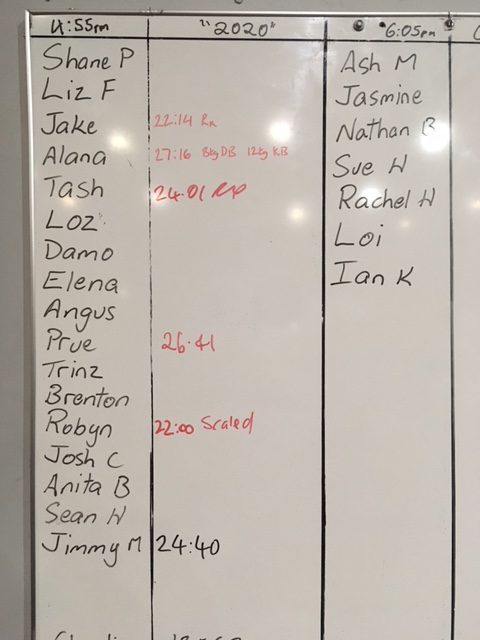 4:55pm "2020" 6:05pm
Shane P
Liz F
Jake 22:14 Rx
Alana 27:16 8kg DB 12kg KB
Tash 24.01 RX
Loz
Damo
Elena
Angus
Prue 26.41
Trinz
Brenton
Robyn 22:00 Scaled
Josh C
Anita B
Sean W
Jimmy M 24:40
Ash M
Jasmine
Nathan B
Sue W
Rachel W
Loi
Ian K